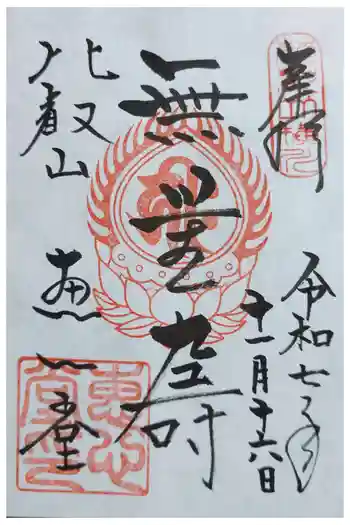 奉拝
令和七年
十一月十六日
無量寿
比叡山
恵心堂